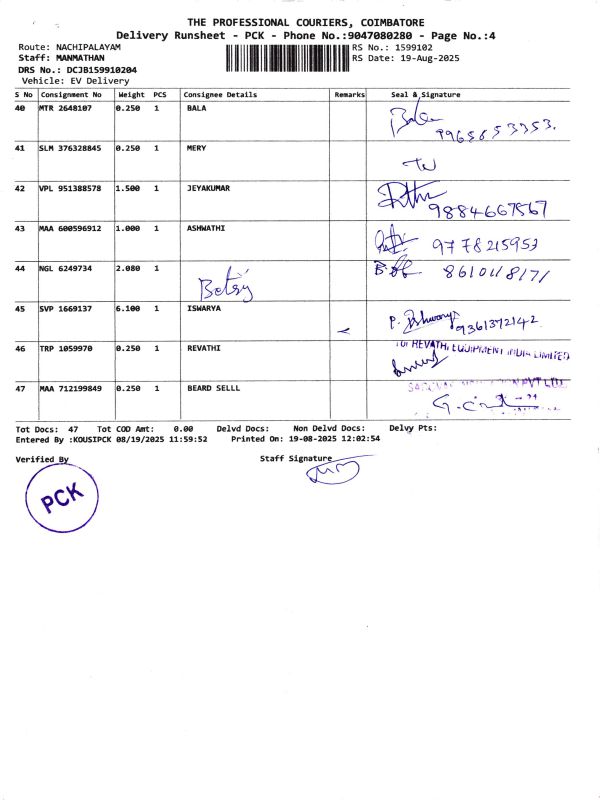 THE PROFESSIONAL COURIERS, COIMBATORE
Delivery Runsheet - PCK - Phone No.:9047080280 - Page No.:4
Route: NACHIPALAYAM RS No.: 1599102
Staff: MANMATHAN RS Date: 19-Aug-2025
DRS No.: DCJB159910204
Vehicle: EV Delivery
S No Consignment No Weight PCS Consignee Details Remarks Seal & Signature
40 MTR 2648107 0.250 1 BALA Bala
41 SLM 376328845 0.250 1 MERY
42 VPL 951388578 1.500 1 JEYAKUMAR
9884667567
43 MAA 600596912 1.000 1 ASHWATHI
9778215953
44 NGL 6249734 2.080 1
Betsy
45 SVP 1669137 6.100 1 ISWARYA
9361372142
46 TRP 1059970 0.250 1 REVATHI For REVATHI EQUIPMENT INDIA LIMITED
47 MAA 712199849 0.250 1 BEARD SELLL PVT LTD
Tot Docs: 47 Tot COD Amt: 0.00 Delvd Docs: Non Delvd Docs: Delvy Pts:
Entered By :KOUSIPCK 08/19/2025 11:59:52 Printed On: 19-08-2025 12:02:54
Verified By Staff Signature
PCK